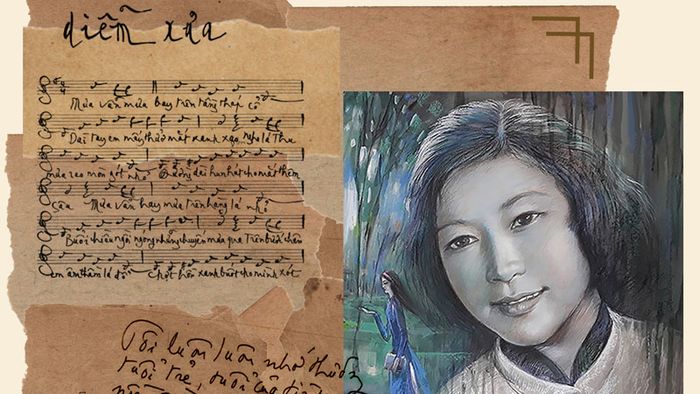 diễm xưa
Mưa vẫn mưa bay trên tầng tháp cổ
Dài tay em mấy thuở mắt xanh xao Nghe lá thu
mưa reo mòn gót nhỏ Đường dài hun hút cho mắt thêm
sâu Mưa vẫn hay mưa trên hàng lá nhỏ
Buổi chiều ngồi ngóng những chuyến mưa qua Trên bước chân
em âm thầm lá đổ Chợt hồn xanh buốt cho mình xót
Tôi luôn luôn nhớ
tuổi trẻ, tuổi của